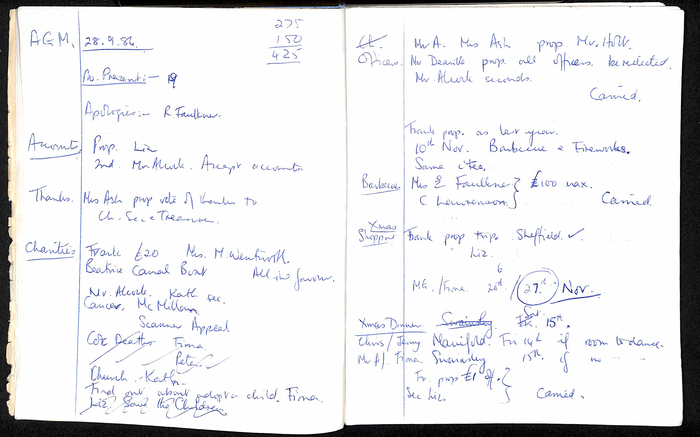 275
150
425
A.G.M. 28.9.86.
No. Present:- 19
Apologies:- R Faulkner.
Accounts Prop. Liz
2nd. Mr Alcock. Accept accounts
Thanks. Mrs Ash prop vote of thanks to
Ch. Sec & Treasurer.
Charities Frank £20 Mrs. M. Wentworth.
Beatrice Canal Boat All in favour.
Mr. Alcock, Kath sec.
Cancer, Mc Millan
Scanner Appeal
Cot Deaths Fiona
Peter
Church - Kath
Find out about adopt a child. Fiona.
Liz Save the Children
Ch. Mr A. Mrs Ash prop Mr. Holt.
Officers. Mr Deanile prop. all officers re elected.
Mr Alcock seconds.
Carried.
Frank prop. as last year.
10th Nov. Barbecue & Fireworks.
Same
Barbecue Mrs E Faulkner } £100 max.
C Lawrenson } Carried.
Xmas
Shopping Frank prop trip Sheffield. ✓
" Liz.
ME. /Fiona 20th / 27th Nov.
6
Xmas Dinner Swainsley Sat. 15th.
Chris / Jenny Manifold Fri 14th if room to dance.
Mr A / Fiona Swainsley 15th if no " "
Fr. prop £1 off. }
Sec Liz. } Carried.